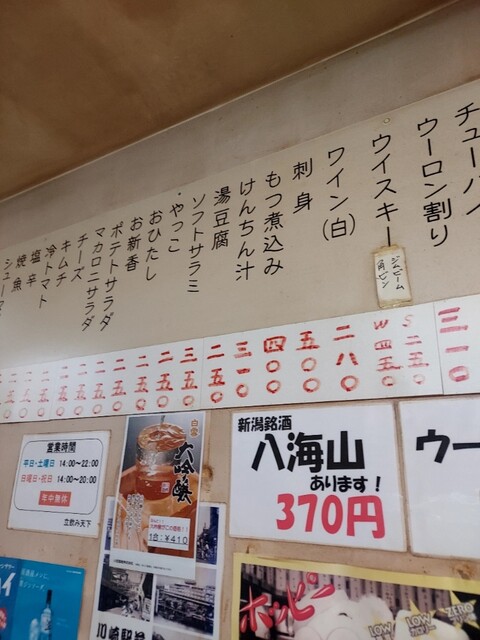 チューハイ
ウーロン割り
ウイスキー
ジムビーム
角ビン
ワイン(白)
刺身
もつ煮込み
けんちん汁
湯豆腐
ソフトサラミ
やっこ
おひたし
お新香
ポテトサラダ
マカロニサラダ
チーズ
キムチ
冷トマト
塩辛
焼魚
シューマ
三一〇
S二五〇
W四五〇
二八〇
五〇〇
四〇〇
三一〇
二五〇
三五〇
二五〇
二五〇
二五〇
二五〇
二五〇
営業時間
平日・土曜日 14:00〜22:00
日曜日・祝日 14:00〜20:00
年中無休
立飲み天下
白雪
大吟醸
1合:¥410
新潟銘酒
八海山
あります!
370円
ウー
川崎駅
ホッピー
LOW
LOW
ZERO